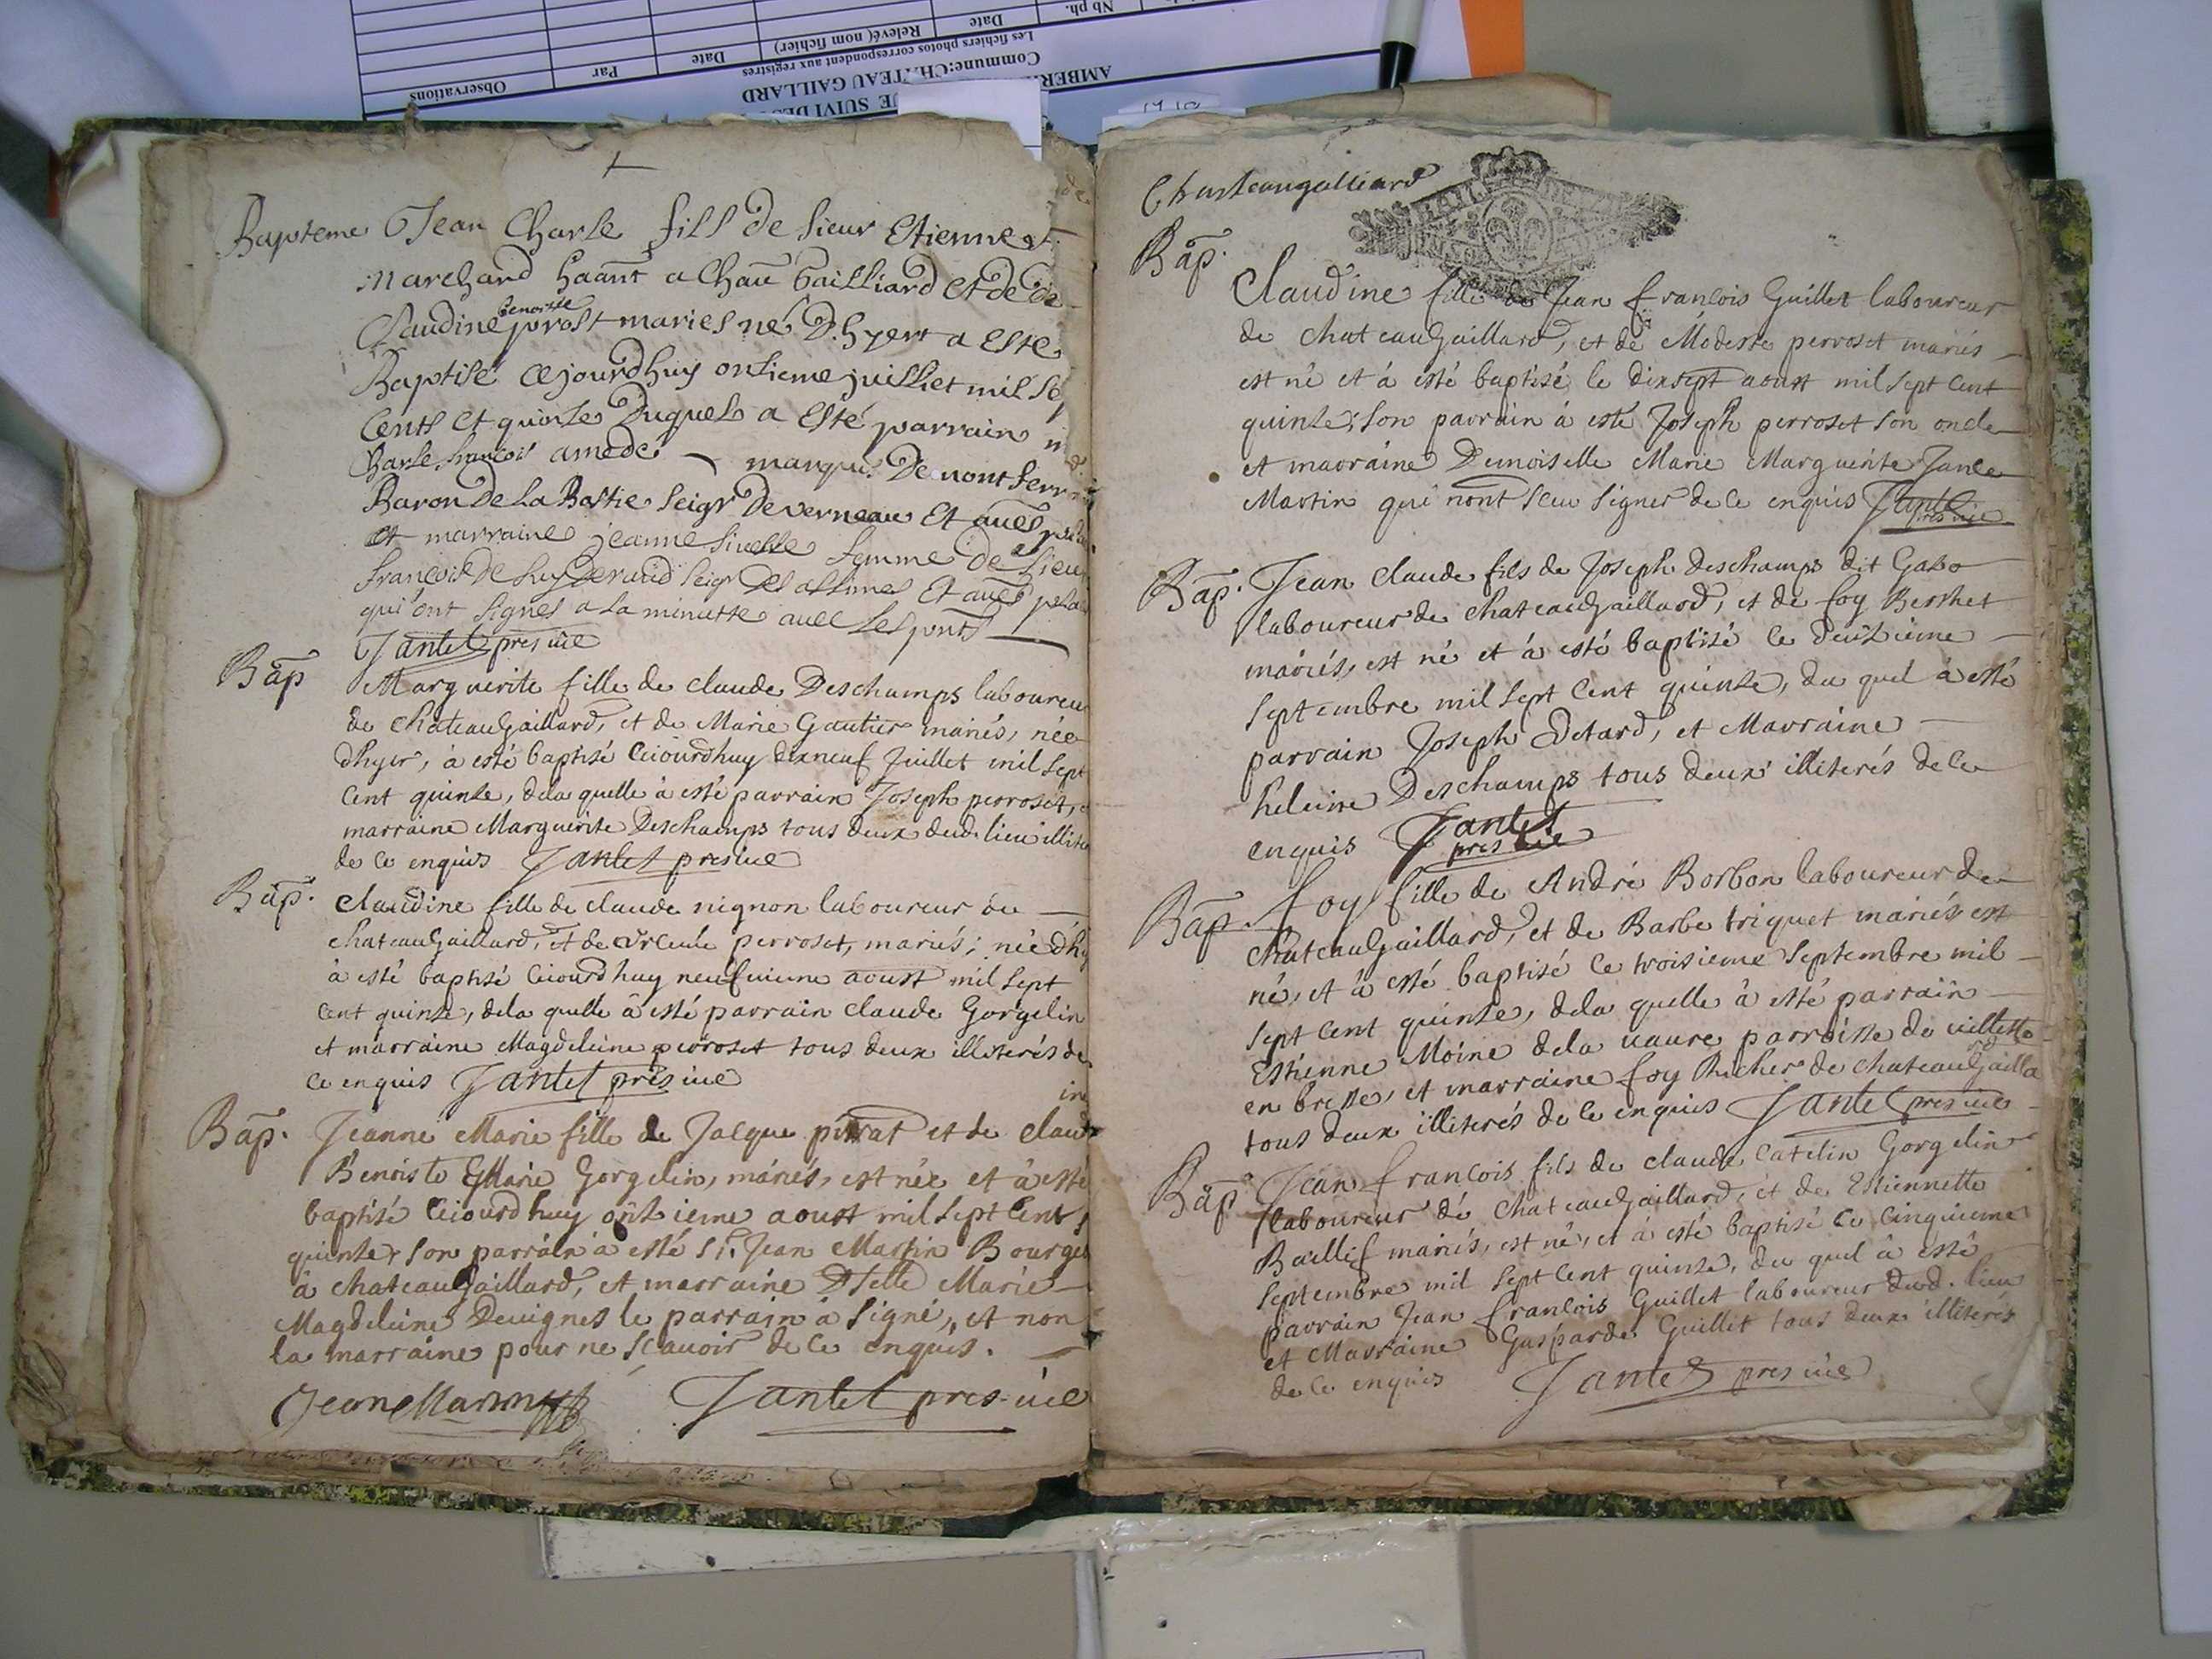 Observations
Par
Date
Relevé( nom fichier)
Date
Nb ph.
Les fichiers photos correspondent aux registres
Commune:CHATEAU GAILLARD
E SUIVI DE
AMBER
Bapteme Jean Charle fils de sieur Etienne
Marchand haānt a Chaū Gailliard et de
Claudine benoitte prost maries né D'hyert a este
Baptisé cejourdhuy onsieme juilliet mil se
cents et quinse Duquel a esté parrain
Charle francois amedé - marquis De mont ferr
Baron De La Bastie seigr De verneau Et aūes
et marraine jeanne femme De sieu
francois De seigr Des Et aūes
qui ont signes a la minutte avec les pnts
Jantet pres vic
Bāp Marguerite fille de claude Deschamps laboureu
de chateaugaillard, et de Marie Gautier mariés, née
dhyer, à esté baptisé ceiourdhuy dixneuf Juillet mil sept
cent quinse, dela quelle à esté parrain Joseph perroset,
marraine Marguerite Deschamps tous deux dud. lieu illite
de ce enquis Jantet pres vic
Bāp. claudine fille de claude nignon laboureur de
chateaugaillard, et de perroset, mariés; née dhy
à esté baptisé ceiourdhuy neufvieme aoust mil sept
cent quinse, dela quelle à esté parrain claude Gorgelin
et marraine Magdeleine perroset tous deux illiterés de
ce enquis Jantet pres vic
Bāp. Jeanne Marie fille de Jacque pirrat et de claud
ine
Benoiste Marie Gorgelin, mariés, est née et à esté
baptisé ceiourdhuy onsieme aoust mil sept cent
quinse, son parrain à esté sr. Jean Martin Bourge
à chateaugaillard, et marraine Dlle Marie
Magdeleine Devignes le parrain à signé, et non
la marraine pour ne scavoir de ce enquis.
Jean Martin Jantet pres vic
Chasteaugalliard
Bāp.
Claudine fille de Jean francois Guillet laboureur
de chateaugaillard, et de Modeste perroset mariés
est né et à esté baptisé le dixsept aoust mil sept cent
quinse, son parrain à esté Joseph perroset son oncle
et marraine Demoiselle Marie Marguerite Jance
Martin qui nont sceu signer de ce enquis Jantet
pres vic
Bāp. Jean claude fils de Joseph Deschamps dit Gabo
laboureur de chateaugaillard, et de foy Berthet
mariés, est né et à esté baptisé le deusieme
septembre mil sept cent quinse, du quel à esté
parrain Joseph Detard, et Marraine
heleine Deschamps tous deux illiterés de ce
enquis Jantet
pres vic
Bāp. foy fille de André Borbon laboureur de
chateaugaillard, et de Barbe triquet mariés est
né, et à esté baptisé le troisieme septembre mil
sept cent quinse, dela quelle à esté parrain
Estienne Moine dela vavre parroisse de villette
en bresse, et marraine foy Richer de chateaugailla
rd
tous deux illiterés de ce enquis Jantet pres vic
Bāp. Jean francois fils de claude Catelin Gorgelin
laboureur de chateaugaillard, et de Estiennette
Baillif mariés, est né, et à esté baptisé le cinquieme
septembre mil sept cent quinse, du quel à esté
parrain Jean francois Guillet laboureur dud. lieu
et Marraine Gasparde Guillet tous deux illiterés
de ce enquis Jantet pres vic